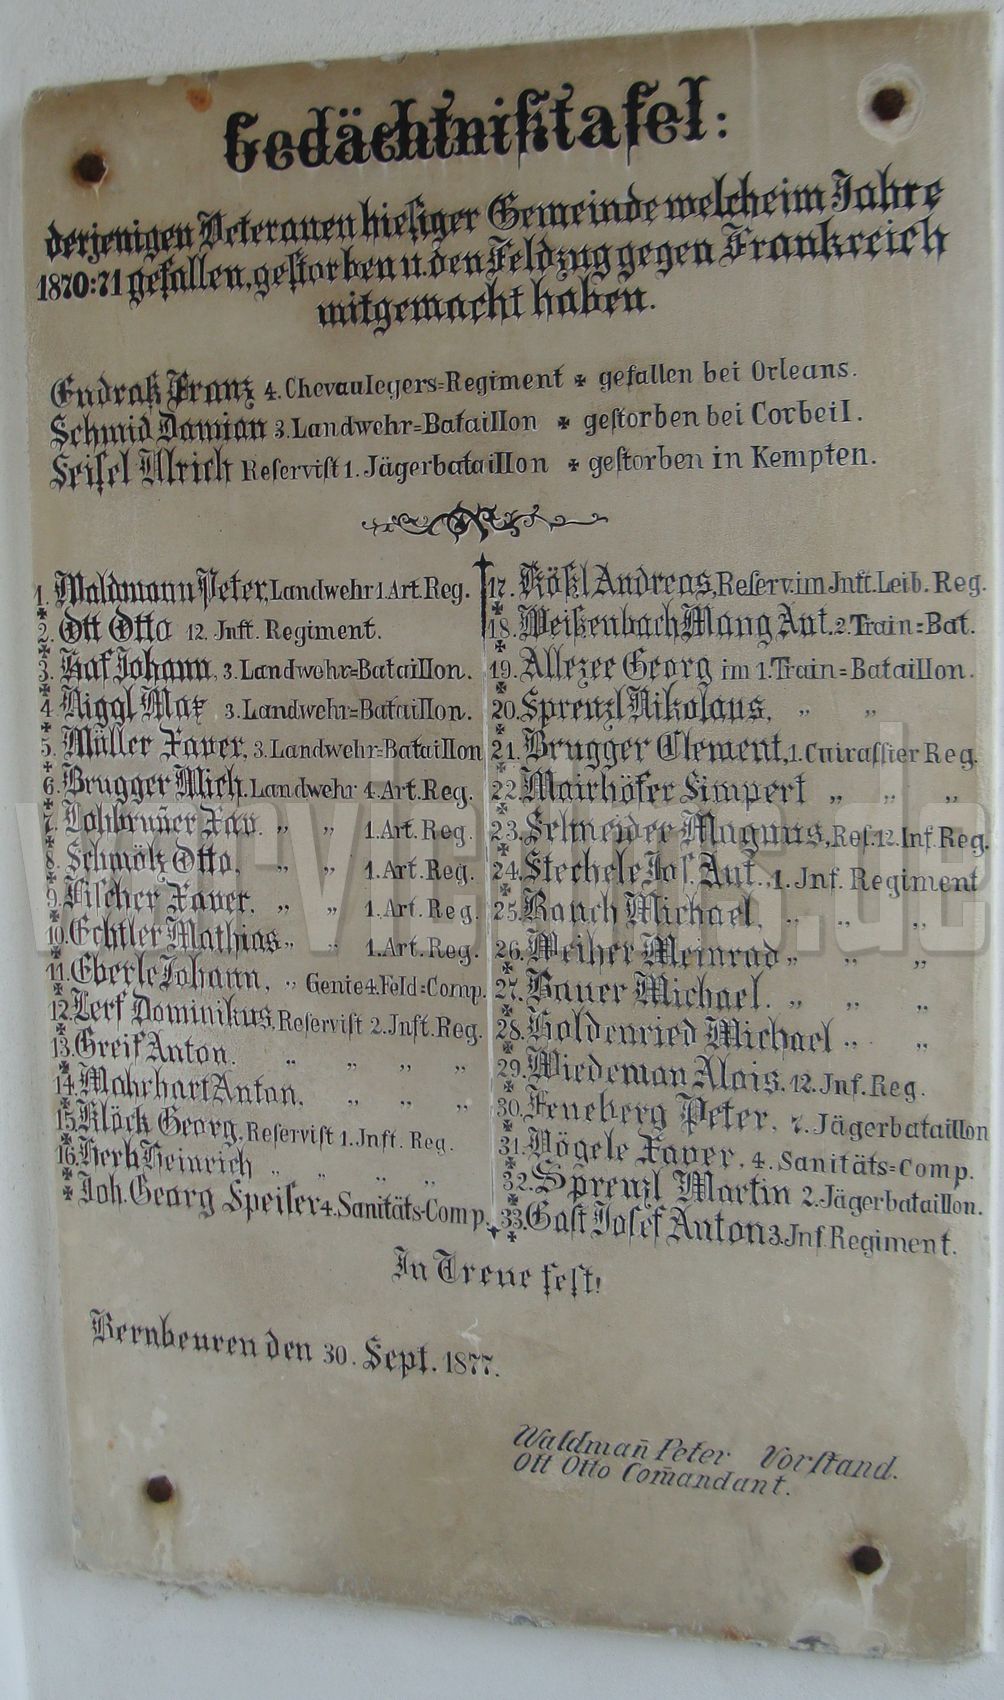 Gedächtnißtafel:
derjenigen Veteranen hiesiger Gemeinde welche im Jahre
1870:71 gefallen, gestorben u. den Feldzug gegen Frankreich
mitgemacht haben.
Endraß Franz 4. Chevaulegers=Regiment ✠ gefallen bei Orleans.
Schmid Damian 3. Landwehr=Bataillon ✠ gestorben bei Corbeil.
Seisel Ulrich Reservist 1. Jägerbataillon ✠ gestorben in Kempten.
1. Waldmann Peter, Landwehr 1. Art. Reg.
2. Ott Otto 12. Inft. Regiment.
3. Haf Johann, 3. Landwehr=Bataillon.
4 Niggl Max 3. Landwehr=Bataillon.
5. Müller Xaver, 3. Landwehr=Bataillon
6. Brugger Mich. Landwehr 4. Art. Reg.
7. Lohbruñer Xav. „ „ 1. Art. Reg.
8. Schmölz Otto, „ „ 1. Art. Reg.
9. Fischer Xaver. „ „ 1. Art. Reg.
10. Echtler Mathias „ „ 1. Art. Reg.
11. Eberle Johann, „ Genie 4. Feld=Comp.
12. Lerf Dominikus, Reservist 2. Inft. Reg.
13. Greif Anton. „ „ „ „
14. Mahrhart Anton, „ „ „
15. Klöck Georg, Reservist 1. Inft. Reg.
16. Herb Heinrich „ „ „ „
Joh. Georg Speiser 4. Sanitäts=Comp.
17. Kößl Andreas, Reserv. im Inft. Leib. Reg.
18. Weißenbach Mang Ant. 2. Train=Bat.
19. Allezee Georg im 1. Train=Bataillon.
20. Sprenzl Nikolaus, „ „
21. Brugger Clement, 1. Cuirassier Reg.
22. Mairhöfer Simpert „ „ „
23. Schneider Magnus, Res. 12. Inf. Reg.
24. Stechele Jos. Ant., 1. Inf. Regiment
25. Rauch Michael, „ „ „
26. Weiher Meinrad „ „ „
27. Bauer Michael. „ „ „
28. Holdenried Michael „ „
29. Wiedeman Alois. 12. Inf. Reg.
30. Feneberg Peter, 7. Jägerbataillon
31. Vögele Xaver, 4. Sanitäts=Comp.
32. Sprenzl Martin 2. Jägerbataillon.
33. Gast Josef Anton 3. Inf. Regiment.
In Treue fest!
Bernbeuren den 30. Sept. 1877.
Waldmañ Peter Vorstand.
Ott Otto Com̄andant.